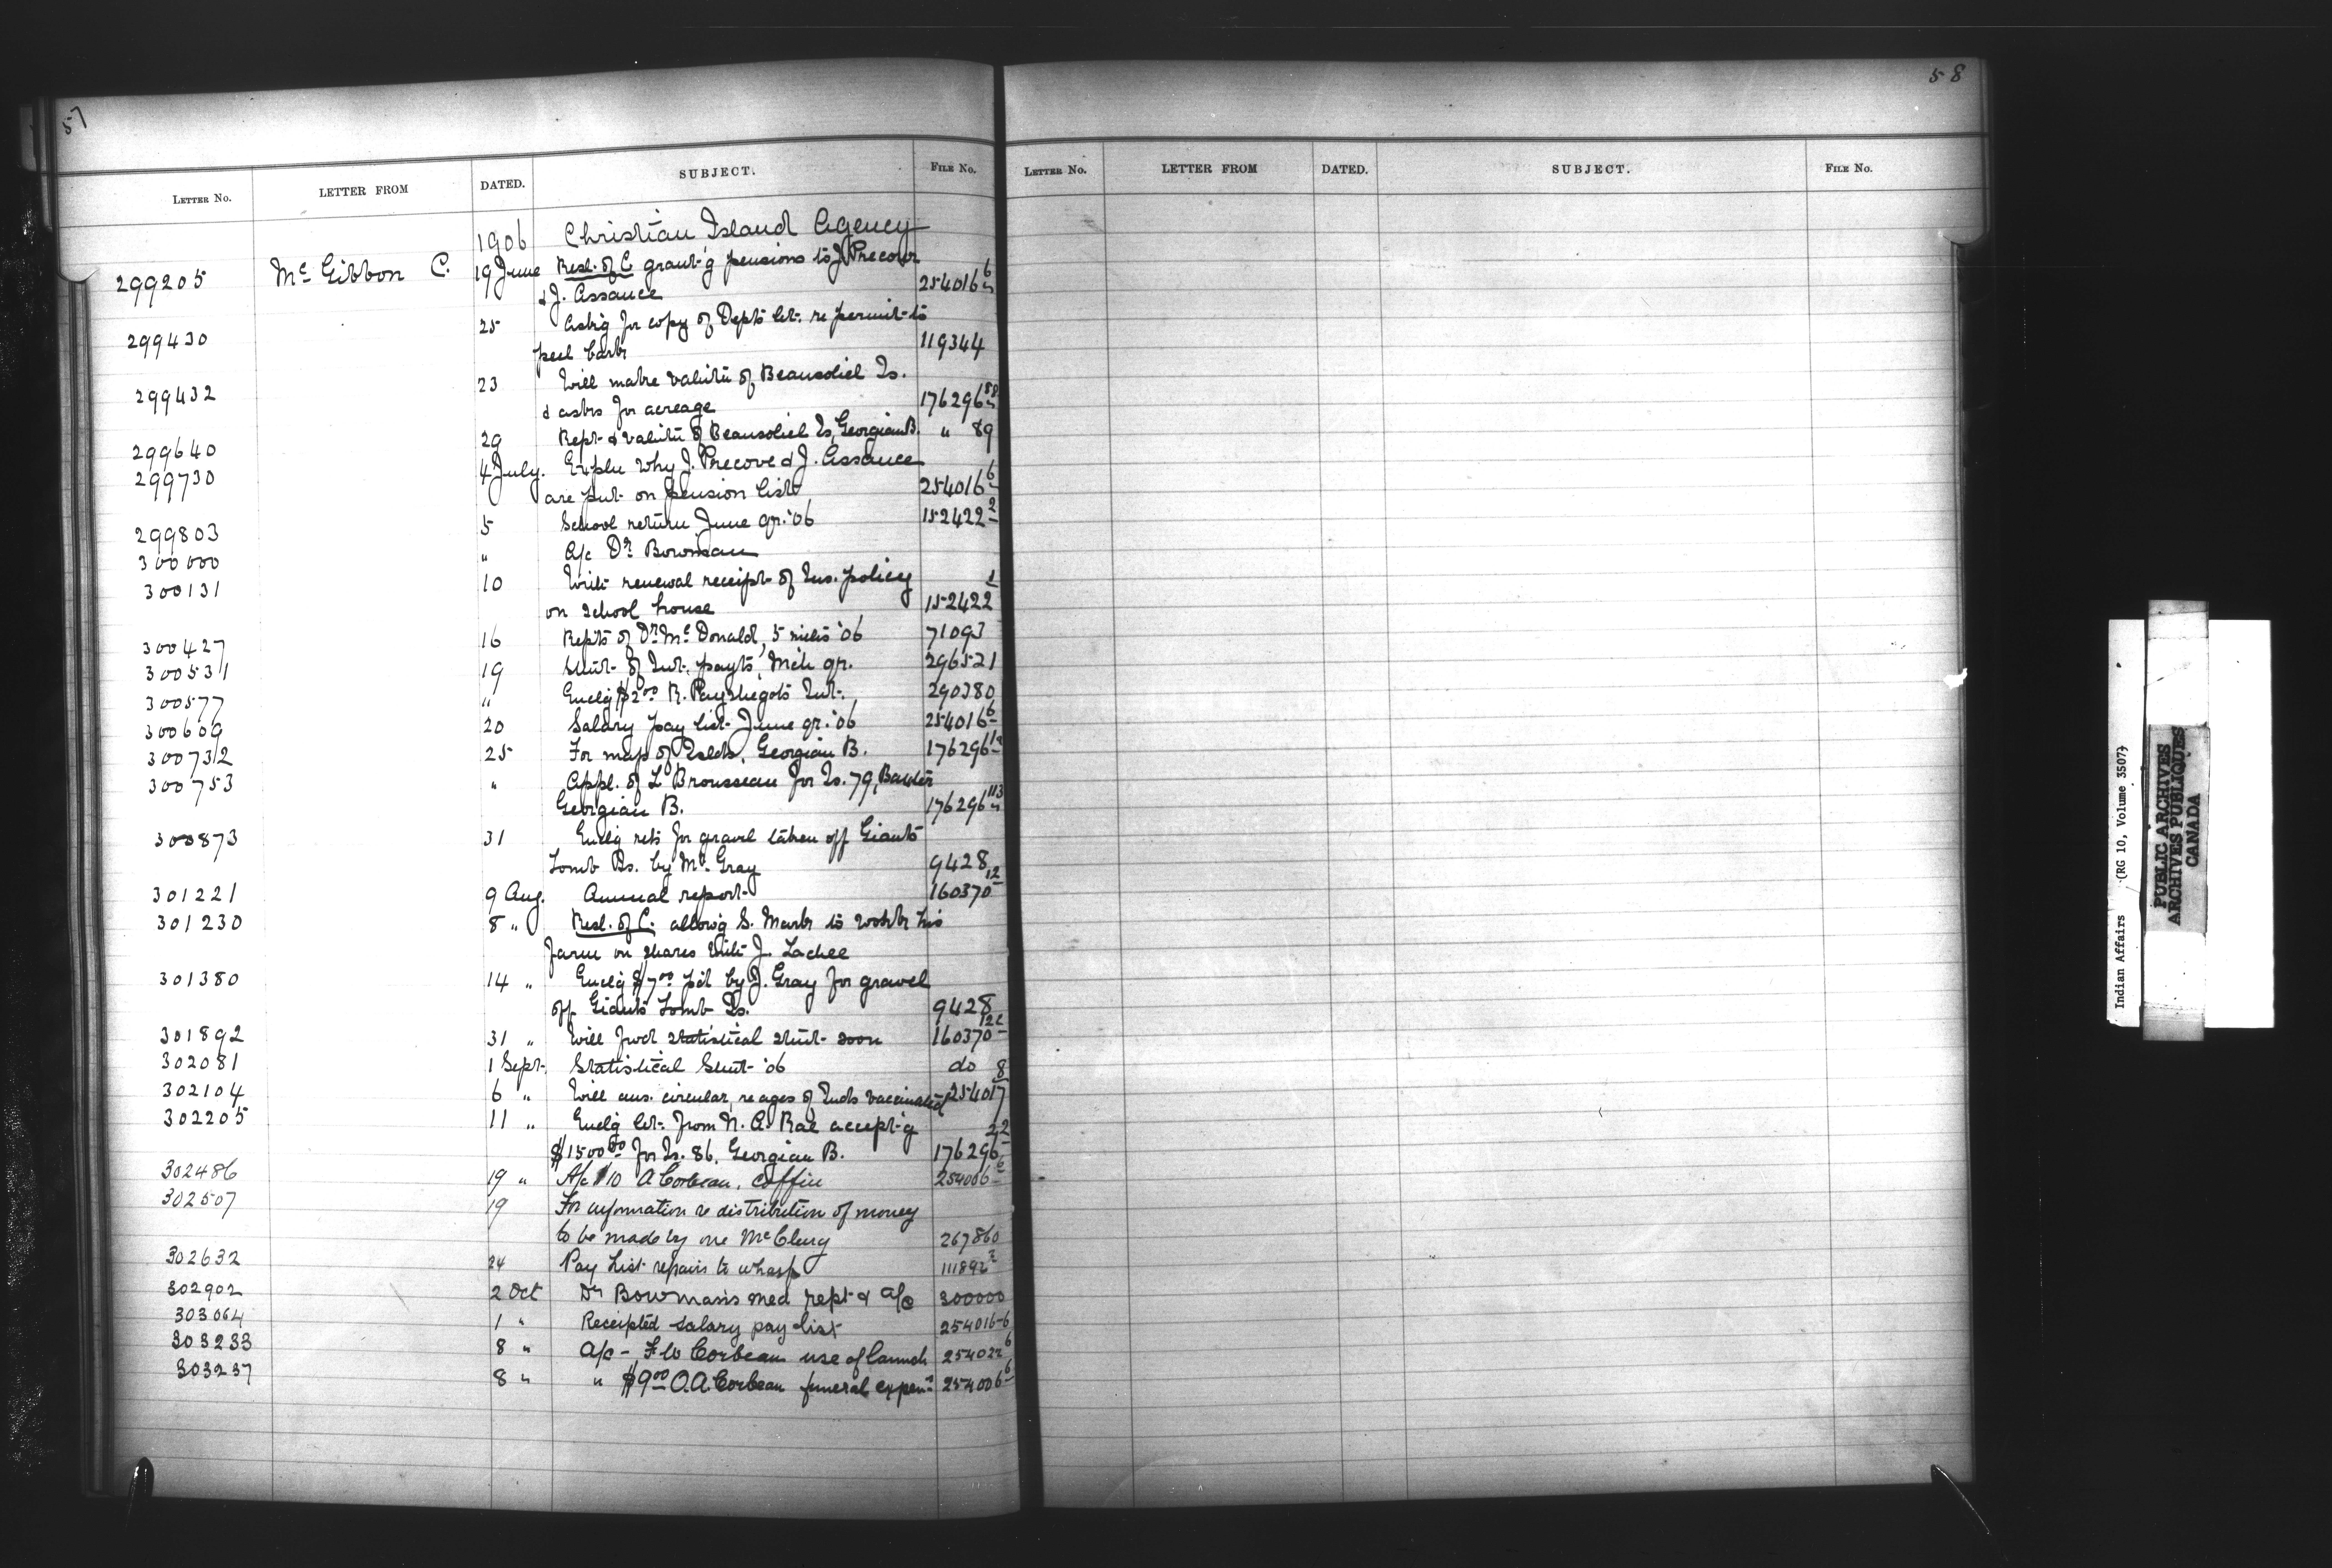 57
LETTER No. LETTER FROM DATED. SUBJECT. FILE No.
1906 Christian Island Agency
299205 Mc Gibbon C. 19 June Resl. of C. grant'g pensions to J. Precour
& J. Assance 254016 6
299430 25 Ask'g for copy of Dept's let. re permit to
peel bark 119344
299432 23 Will make valu'tn of Beausoliel Is.
& asks for acreage 176296 88
299640 29 Rept & valu'tn of Beausoliel Is, Georgian B. " 89
299730 4 July. Expln why J. Precove & J. Assance
are put on pension list 254016 6
299803 5 School return June qr. '06 152422 2
300000 " A/c Dr Bowman
300131 10 With renewal receipt of Ins. policy
on school house 152422 1
300427 16 Repts of Dr Mc Donald, 5 mths '06 71093
300531 19 Stmt of Int. payts, Mch qr. 296521
300577 " Enclg $2.00 R. Int. 290380
300609 20 Salary pay list June qr. '06 254016 6
300732 25 For map of Islds, Georgian B. 176296
300753 " Appl. of L Brousseau for Is. 79, Baxter
Georgian B. 176296 113
300873 31 Enclg rets for gravel taken off Giants
Tomb Is. by Mr. Gray 9428
301221 9 Aug. Annual report 160370 12
301230 8 " Resl. of C. allow'g S. Mark to work his
farm on shares with J. Lachee
301380 14 " Enclg $7.00 p'd by J. Gray for gravel
off Giants Tomb Is. 9428
301892 31 " Will fwd statistical stmt soon 160370
302081 1 Sept. Statistical Stmt '06 do
302104 6 " Will ans. circular, re ages of Inds vaccinated 254017 8
302205 11 " Enclg let. from N. A. Rae accept'g
$1500.00 for Is. 86, Georgian B. 176296 22
302486 19 " A/c $10 A Corbeau, coffin 254006 6
302507 19 For information re distribution of money
to be made by one McClurg 267860
302632 24 Pay List repairs to wharf 111892 2
302902 2 Oct Dr Bowman's med rept & a/c 300000
303064 1 " Receipted salary pay list 254016-6
303233 8 " A/c - F W Corbeau use of launch 254022 6
303237 8 " " $9.00 O.A. Corbeau funeral expens 254006 6
58
LETTER No. LETTER FROM DATED. SUBJECT. FILE No.
Indian Affairs (RG 10, Volume 3507)
PUBLIC ARCHIVES
ARCHIVES PUBLIQUES
CANADA